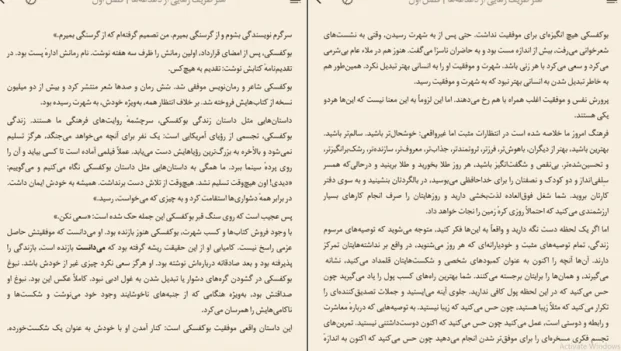 سرگرم نویسندگی بشوم و از گرسنگی بمیرم. من تصمیم گرفته‌ام که از گرسنگی بمیرم.»
بوکفسکی، پس از امضای قرارداد، اولین رمانش را ظرف سه هفته نوشت. نام رمانش ادارهٔ پست بود. در
تقدیم‌نامهٔ کتابش نوشت: تقدیم به هیچ‌کس.
بوکفسکی شاعر و رمان‌نویس موفقی شد. شش رمان و صدها شعر منتشر کرد و بیش از دو میلیون
نسخه از کتاب‌هایش فروخته شد. بر خلاف انتظار همه، به‌ویژه خودش، به شهرت رسیده بود.
داستان‌هایی مثل داستان زندگی بوکفسکی، سرچشمهٔ روایت‌های فرهنگی ما هستند. زندگی
بوکفسکی، تجسمی از رؤیای آمریکایی است: یک نفر برای آنچه می‌خواهد می‌جنگد، هرگز تسلیم
نمی‌شود و بالاخره به بزرگ‌ترین رؤیاهایش دست می‌یابد. عملاً فیلمی آماده است تا کسی بیاید و آن را
روی پردهٔ سینما ببرد. ما همگی به داستان‌هایی مثل داستان بوکفسکی نگاه می‌کنیم و می‌گوییم:
«دیدی! اون هیچ‌وقت تسلیم نشد. هیچ‌وقت از تلاش دست برنداشت. همیشه به خودش ایمان داشت.
در برابر همهٔ دشواری‌ها استقامت کرد و به چیزی که می‌خواست، رسید.»
پس عجیب است که روی سنگ قبر بوکفسکی این جمله حک شده است: «سعی نکن.»
با وجود فروش کتاب‌ها و کسب شهرت، بوکفسکی هنوز بازنده بود. او می‌دانست که موفقیتش حاصل
عزمی راسخ نیست. کامیابی او از این حقیقت ریشه گرفته بود که می‌دانست بازنده است، بازندگی را
پذیرفته بود و بعد صادقانه درباره‌اش نوشته بود. او هرگز سعی نکرد چیزی غیر از خودش باشد. نبوغ
بوکفسکی در گشودن گره‌های دشوار یا تبدیل شدن به غول ادبی نبود. کاملاً عکس این بود. نبوغ او
صداقتش بود، به‌ویژه هنگامی که از جنبه‌های ناخوشایند وجود خود می‌نوشت و شکست‌ها و
ناکامی‌هایش را همرسان می‌کرد.
این داستان واقعی موفقیت بوکفسکی است: کنار آمدن او با خودش به عنوان یک شکست‌خورده.
بوکفسکی هیچ انگیزه‌ای برای موفقیت نداشت. حتی پس از به شهرت رسیدن، وقتی به نشست‌های
شعرخوانی می‌رفت، بیش از اندازه مست بود و به حاضران ناسزا می‌گفت. هنوز هم در ملاء عام بی‌شرمی
می‌کرد و سعی می‌کرد با هر زنی باشد. شهرت و موفقیت او را به انسانی بهتر تبدیل نکرد. همین‌طور هم
به خاطر تبدیل شدن به انسانی بهتر نبود که به شهرت و موفقیت رسید.
پرورش نفس و موفقیت اغلب همراه با هم رخ می‌دهند. اما این لزوماً به این معنا نیست که این‌ها هردو
یکی هستند.
فرهنگ امروز ما خلاصه شده است در انتظارات مثبت اما غیرواقعی: خوشحال‌تر باشید. سالم‌تر باشید.
بهترین باشید، بهتر از دیگران، باهوش‌تر، فرزتر، ثروتمندتر، جذاب‌تر، معروف‌تر، سازنده‌تر، رشک‌برانگیزتر،
و تحسین‌شده‌تر. بی‌نقص و شگفت‌انگیز باشید، هر روز طلا بخورید و طلا برینید و درحالی‌که همسر
سلفی‌انداز و دو کودک و نصفتان را برای خداحافظی می‌بوسید، در بالگردتان بنشینید و به سوی دفتر
کارتان بروید. شما شغل فوق‌العاده لذت‌بخشی دارید و روزهایتان را صرف انجام کارهای بسیار
ارزشمندی می‌کنید که احتمالاً روزی کرهٔ زمین را نجات خواهد داد.
اما اگر یک لحظه دست نگه دارید و واقعاً به این‌ها فکر کنید، متوجه می‌شوید که توصیه‌های مرسوم
زندگی، تمام توصیه‌های مثبت و خودیارانه‌ای که هر روز می‌شنوید، در واقع بر نداشته‌هایتان تمرکز
دارند. آن‌ها آنچه را اکنون به عنوان کمبودهای شخصی و شکست‌هایتان قلمداد می‌کنید، نشانه
می‌گیرند، و همان‌ها را برایتان برجسته می‌کنند. شما بهترین راه‌های کسب پول را یاد می‌گیرید چون
حس می‌کنید که در این لحظه پول کافی ندارید. جلوی آینه می‌ایستید و جملات تصدیق‌کننده‌ای را
تکرار می‌کنید که مثلاً زیبا هستید، چون حس می‌کنید که زیبا نیستید. به توصیه‌هایی که دربارهٔ معاشرت
و رابطه و دوستی است، عمل می‌کنید چون حس می‌کنید که اکنون دوست‌داشتنی نیستید. تمرین‌های
تجسم فکری مسخره‌ای را برای موفق‌تر شدن انجام می‌دهید چون حس می‌کنید که اکنون به اندازهٔ
Activate Windows